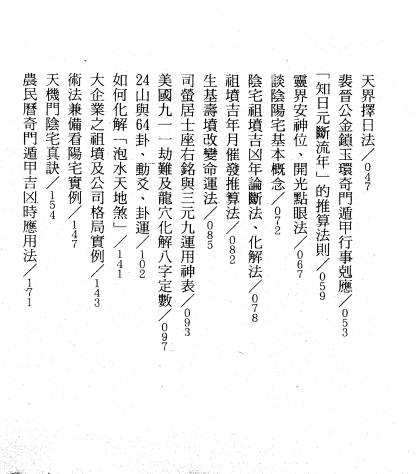 天界擇日法／047
裴晉公金鎖玉環奇門遁甲行事剋應／053
「知日元斷流年」的推算法則／059
靈界安神位、開光點眼法／067
談陰陽宅基本概念／072
陰宅祖墳吉凶年論斷法、化解法／078
祖墳吉年月催發推算法／082
生基壽墳改變命運法／085
司螢居士座右銘與三元九運用神表／093
美國九一一劫難及龍穴化解八字定數／097
24山與64卦、動爻、卦運／102
如何化解「泡水天地煞」／141
大企業之祖墳及公司格局實例／143
術法兼備看陽宅實例／147
天機門陰宅真訣／154
農民曆奇門遁甲吉凶時應用法／171